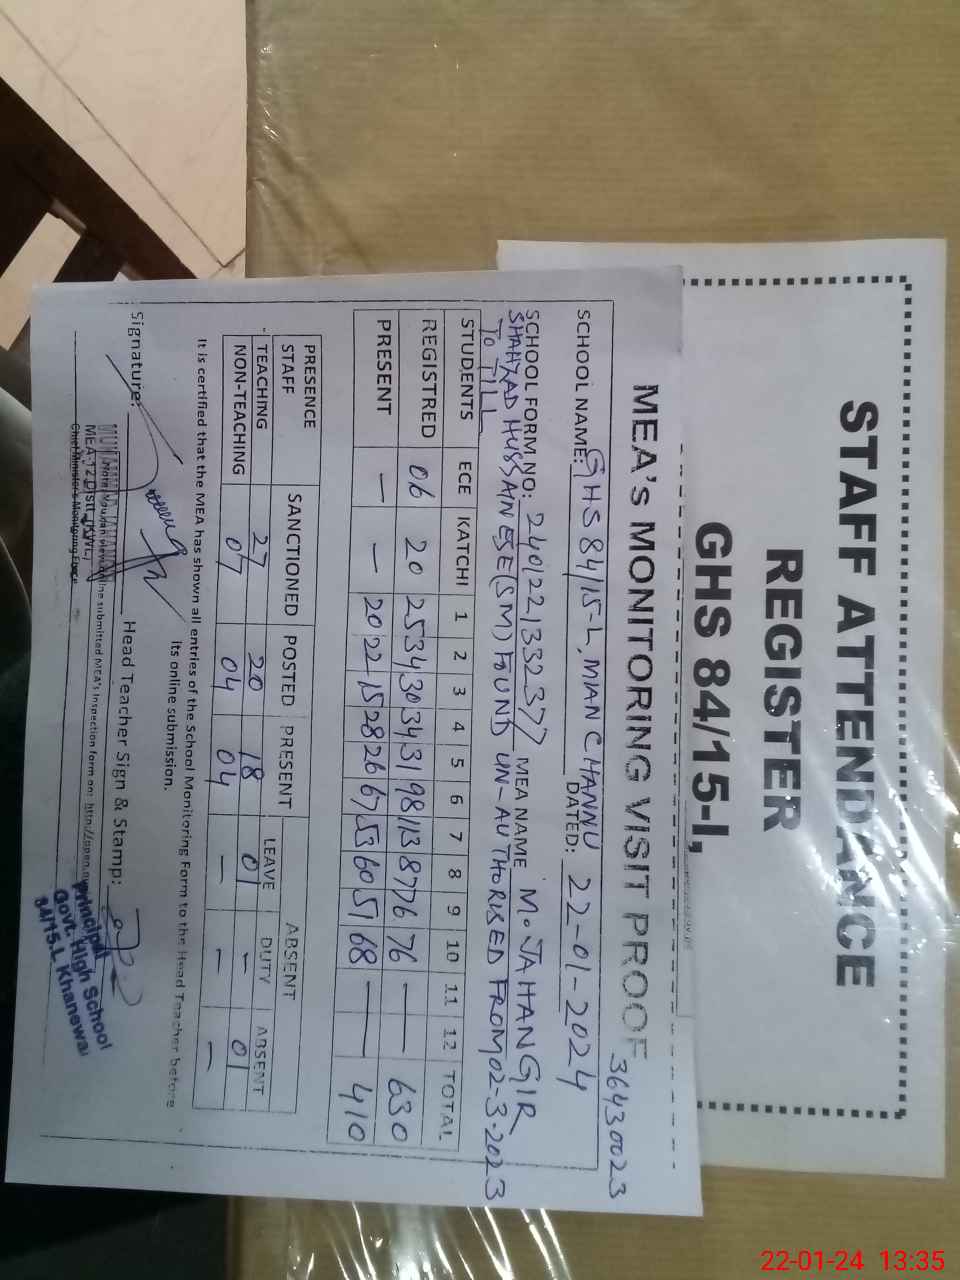 STAFF ATTENDANCE
REGISTER
GHS 84/15-L
36430023
MEA's MONITORING VISIT PROOF
SCHOOL NAME: GHS 84/15-L, MIAN CHANNU DATED: 22-01-2024
SCHOOL FORM NO: 2401221332377 MEA NAME M. JAHANGIR
SHAHZAD HUSSAIN ESE(SM) FOUND UN-AUTHORISED FROM 02-3-2023
TO TILL
STUDENTS ECE KATCHI 1 2 3 4 5 6 7 8 9 10 11 12 TOTAL
REGISTRED 06 20 25 34 30 34 31 98 113 87 76 76 — — 630
PRESENT — — 20 22 15 28 26 67 53 60 51 68 — — 410
PRESENCE STAFF SANCTIONED POSTED PRESENT ABSENT
LEAVE DUTY ABSENT
TEACHING 27 20 18 01 — 01
NON-TEACHING 07 04 04 — — —
It is certified that the MEA has shown all entries of the School Monitoring Form to the Head Teacher before
its online submission.
Signature: Head Teacher Sign & Stamp:
MUHAMMAD JAHANGIR
MEA-12 Distt. KWL
Chief Minister's Monitoring Force
online submitted MEA's inspection form on: http://open.
Principal
Govt. High School
84/15.L Khanewal
22-01-24 13:35